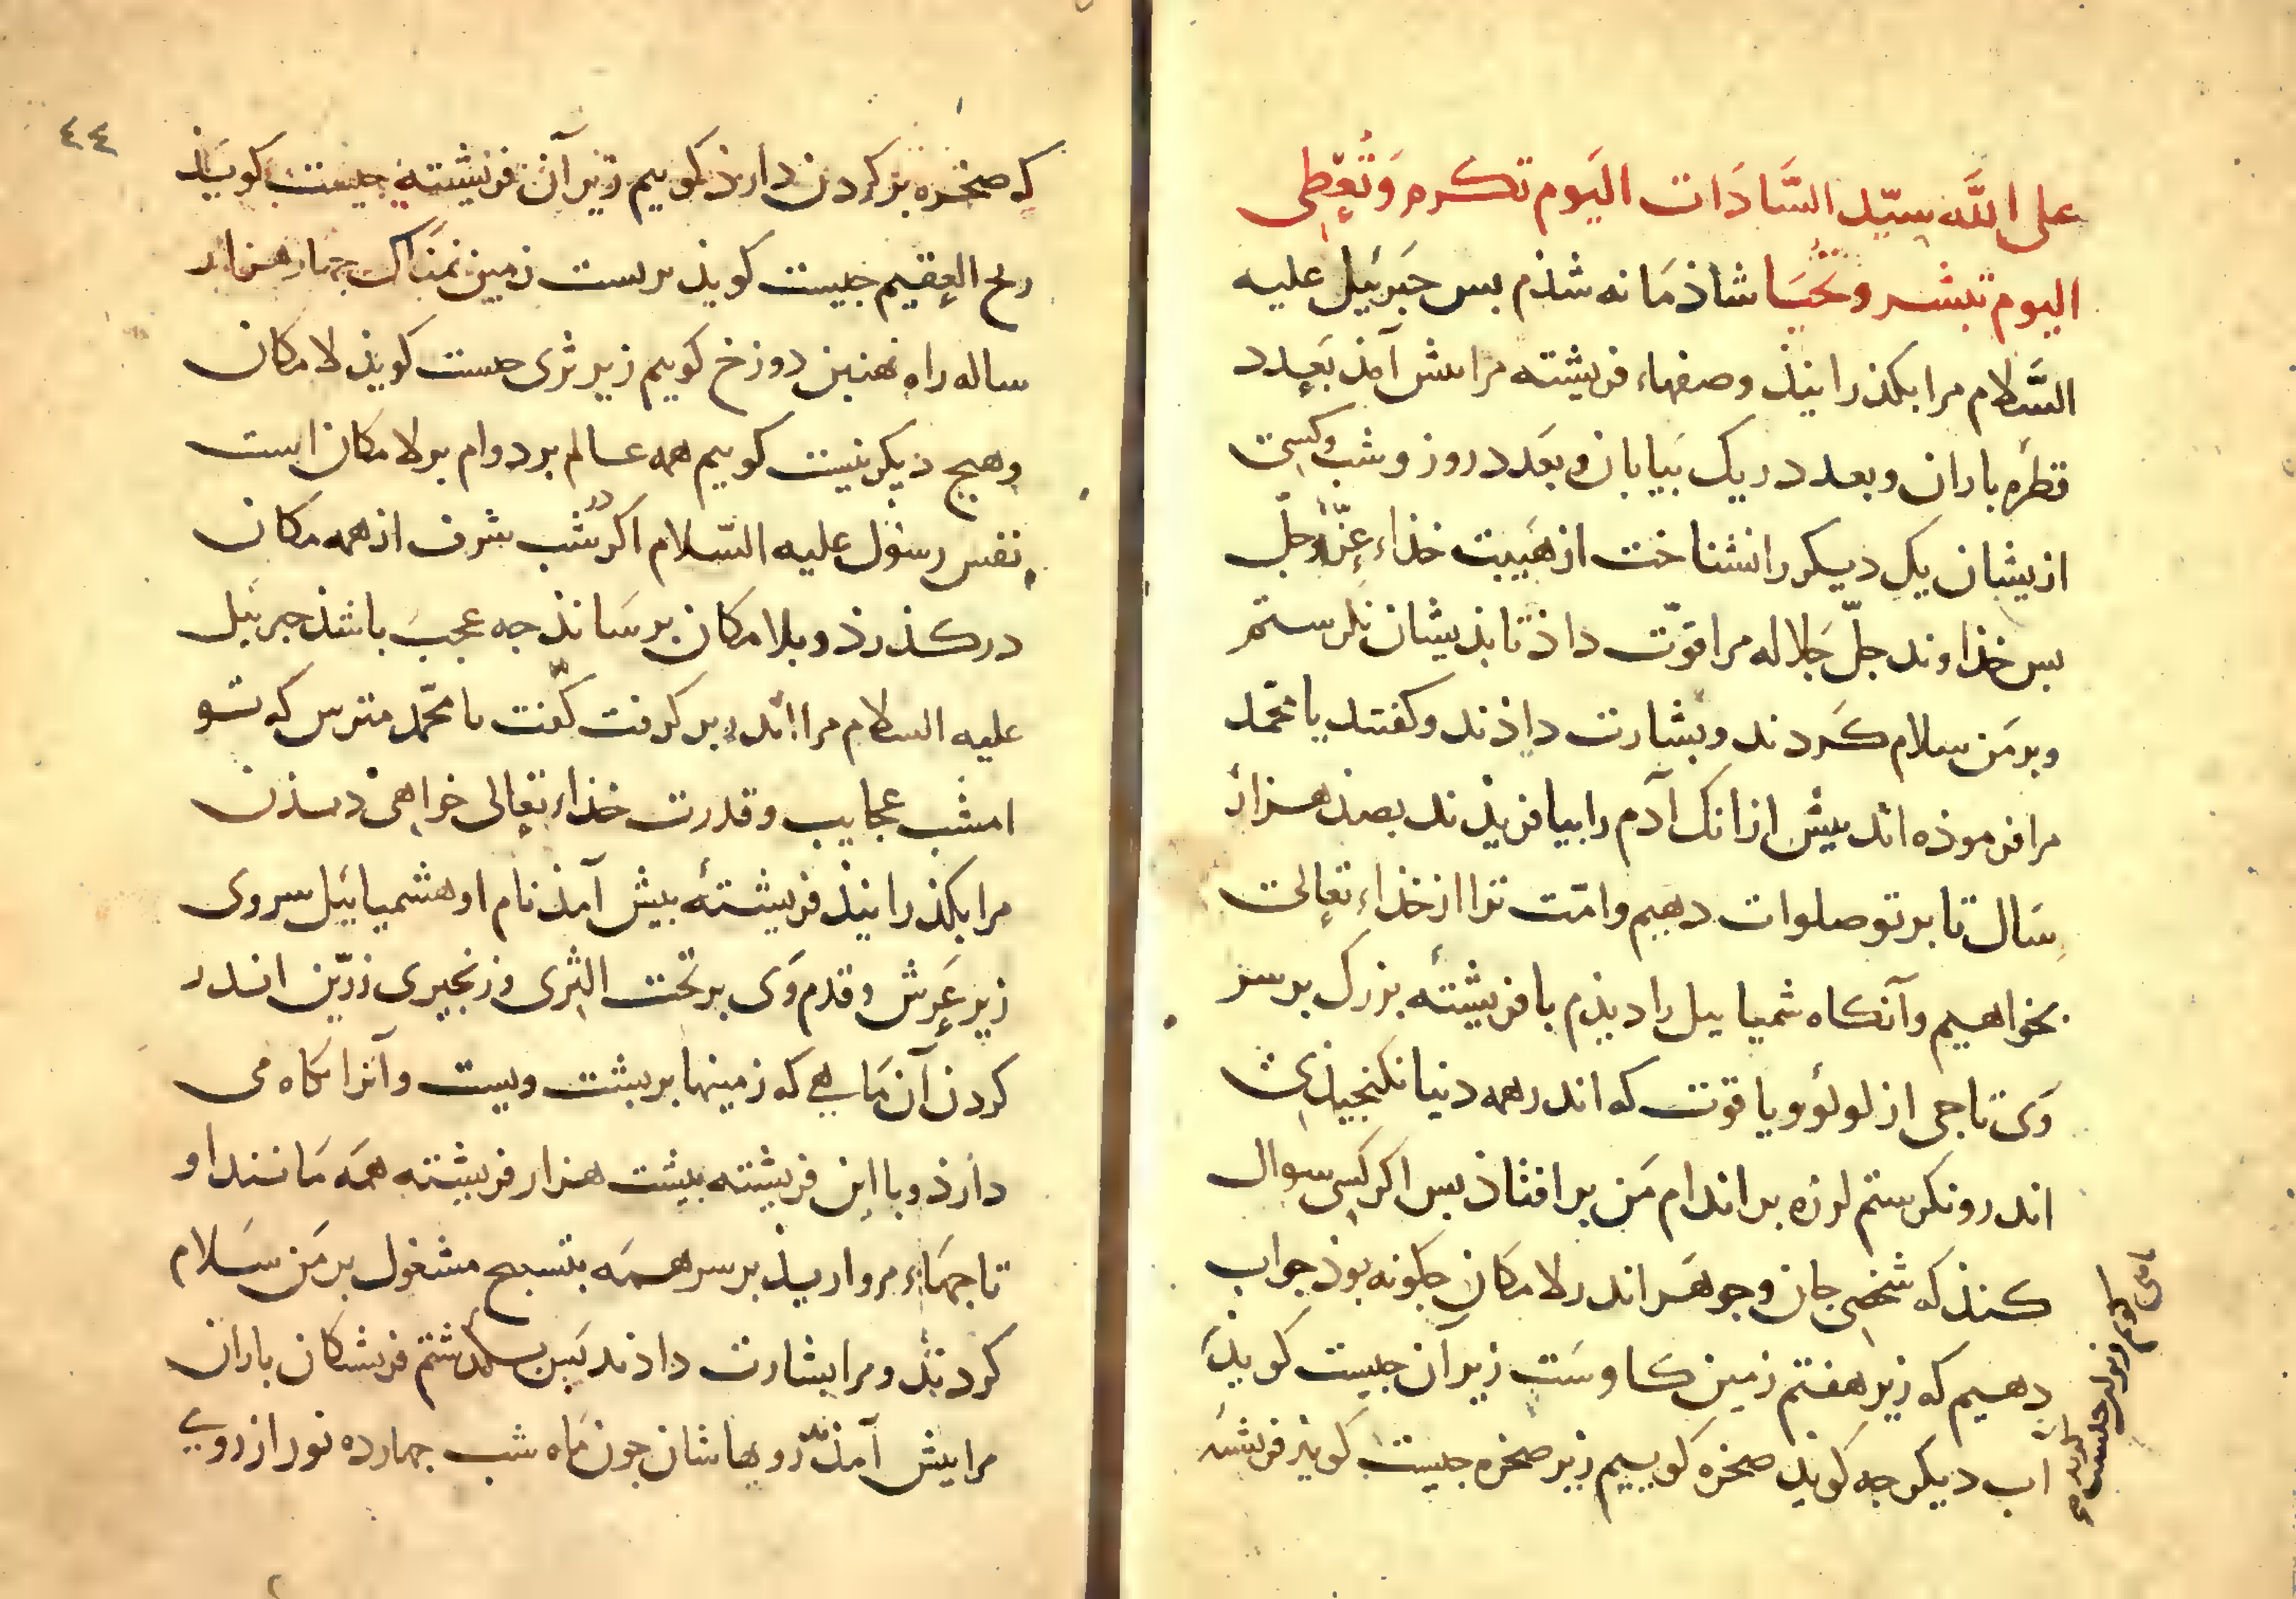 على الله سيّد السَّادَات اليَوم تكرم وَتُعْطى
اليوم تبشر وتحيَا شاذمَانه شذم بس جَبرئيل عليه
السَّلام مرا بكذرانيذ وصفهاء فريشته مرا بيش آمذ بعَدد
قطرهء باران وبعدد ريك بيَابان وبعَدد روز وشب وكسى
ازيشان يك ديكر را نشناخت از هَيبت خذاء عزّ وجلّ
بس خذاوند جلّ جَلاله مرا قوّت داذ تا بذيشان نكرستم
وبر مَن سلام كَردند وبشارت داذند وكفتند يا محمّد
مرا فرموذه اند بيش ازانك آدم را بيافريذند بصذ هزار
سَال تا بر تو صلوات دهيم وامّت ترا از خذاء تعالى
بخواهيم وآنكاه شمياييل را ديذم با فريشتهٔ بزرك بر سر
وَى تاجى از لولؤ ويا قوت كه اندر همه دنيا نكنجيذى
اندرو نكرستم لرزه بر اندام مَن بر افتاذ بس اكر كسى سوال
كنذ كه شخصى جان وجوهَر اندر لا مكان جكونه بوذ جواب
دهيم كه زير هفتم زمين كاوست زير آن جيست كويذ
آب ديكر جه كويذ صخره كوييم زير صخره جيست كويذ فريشته
ماهى كويم زير
٤٤
كه صخره بر كردن دارذ كوييم زير آن فريشته جيست كويذ
ريح العقيم جيست كويذ بر بست زمين نمناك جهار هزار
ساله راه نهنبن دوزخ كوييم زير ثرى جست كويذ لا مكان
وهيج ديكر نيست كوييم همه عالم بر دوام بر لا مكان است
نفس رسول عليه السّلام اكر در شب شرف از همه مكان
در كذرذ وبلا مكان برسَانذ جه عجبَ باشذ جبرئيل
عليه السلام مرا اندر بر كرفت كفت يا محمّد مترس كه تو
امشب عجايب وقدرت خذاء تعالى خواهى ديذن
مرا بكذرانيذ فريشتهٔ بيش آمذ نام او هشمياييل سر وى
زير عَرش وقدم وَى بر تحت الثرى وزنجيرى زرّين اندر
كردن آن مَاهى كه زمينها بر بشت ويست وآنرا نكاه مى
دارذ وبا اين فريشته بيست هزار فريشته همَه مَانند او
تاجهَاء مرواريذ بر سر همَه بتسبيح مشغول بر مَن سَلام
كردند ومرا بشارت داذند بس بكذشتم فريشتكان باران
مرا بيش آمذند رويهاشان جون مَاه شب جهارده نور از روى